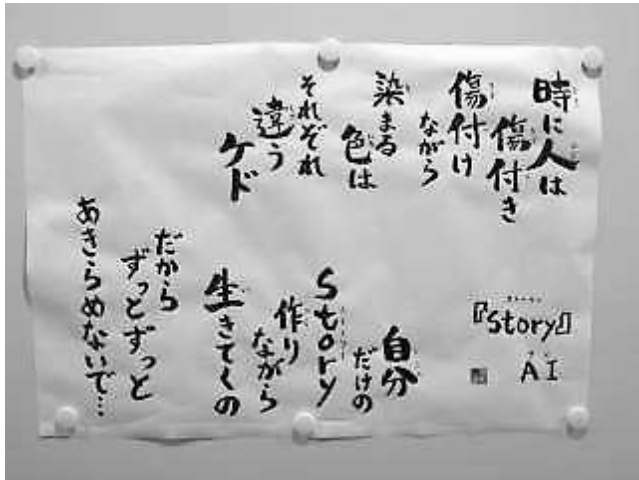 時に人は
傷付き
傷付け
ながら
染まる
色は
それぞれ
違う
ケド
『Story』
AI
自分
だけの
Story
作り
ながら
生きてくの
だから
ずっとずっと
あきらめないで…